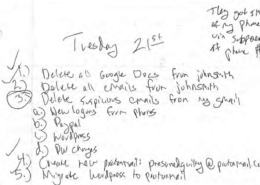 They got
of my phone
via
of phone #
Tuesday 21st
1.) Delete all Google Docs from johnsmith
2.) Delete all emails from johnsmith
3.) Delete suspicious emails from my gmail
a) New logins from phones
b) Paypal
c) Wordpress
d.) PW changes
4.) Create new protonmail: presonalguilty@protonmail.co
5.) Migrate wordpress to protonmail